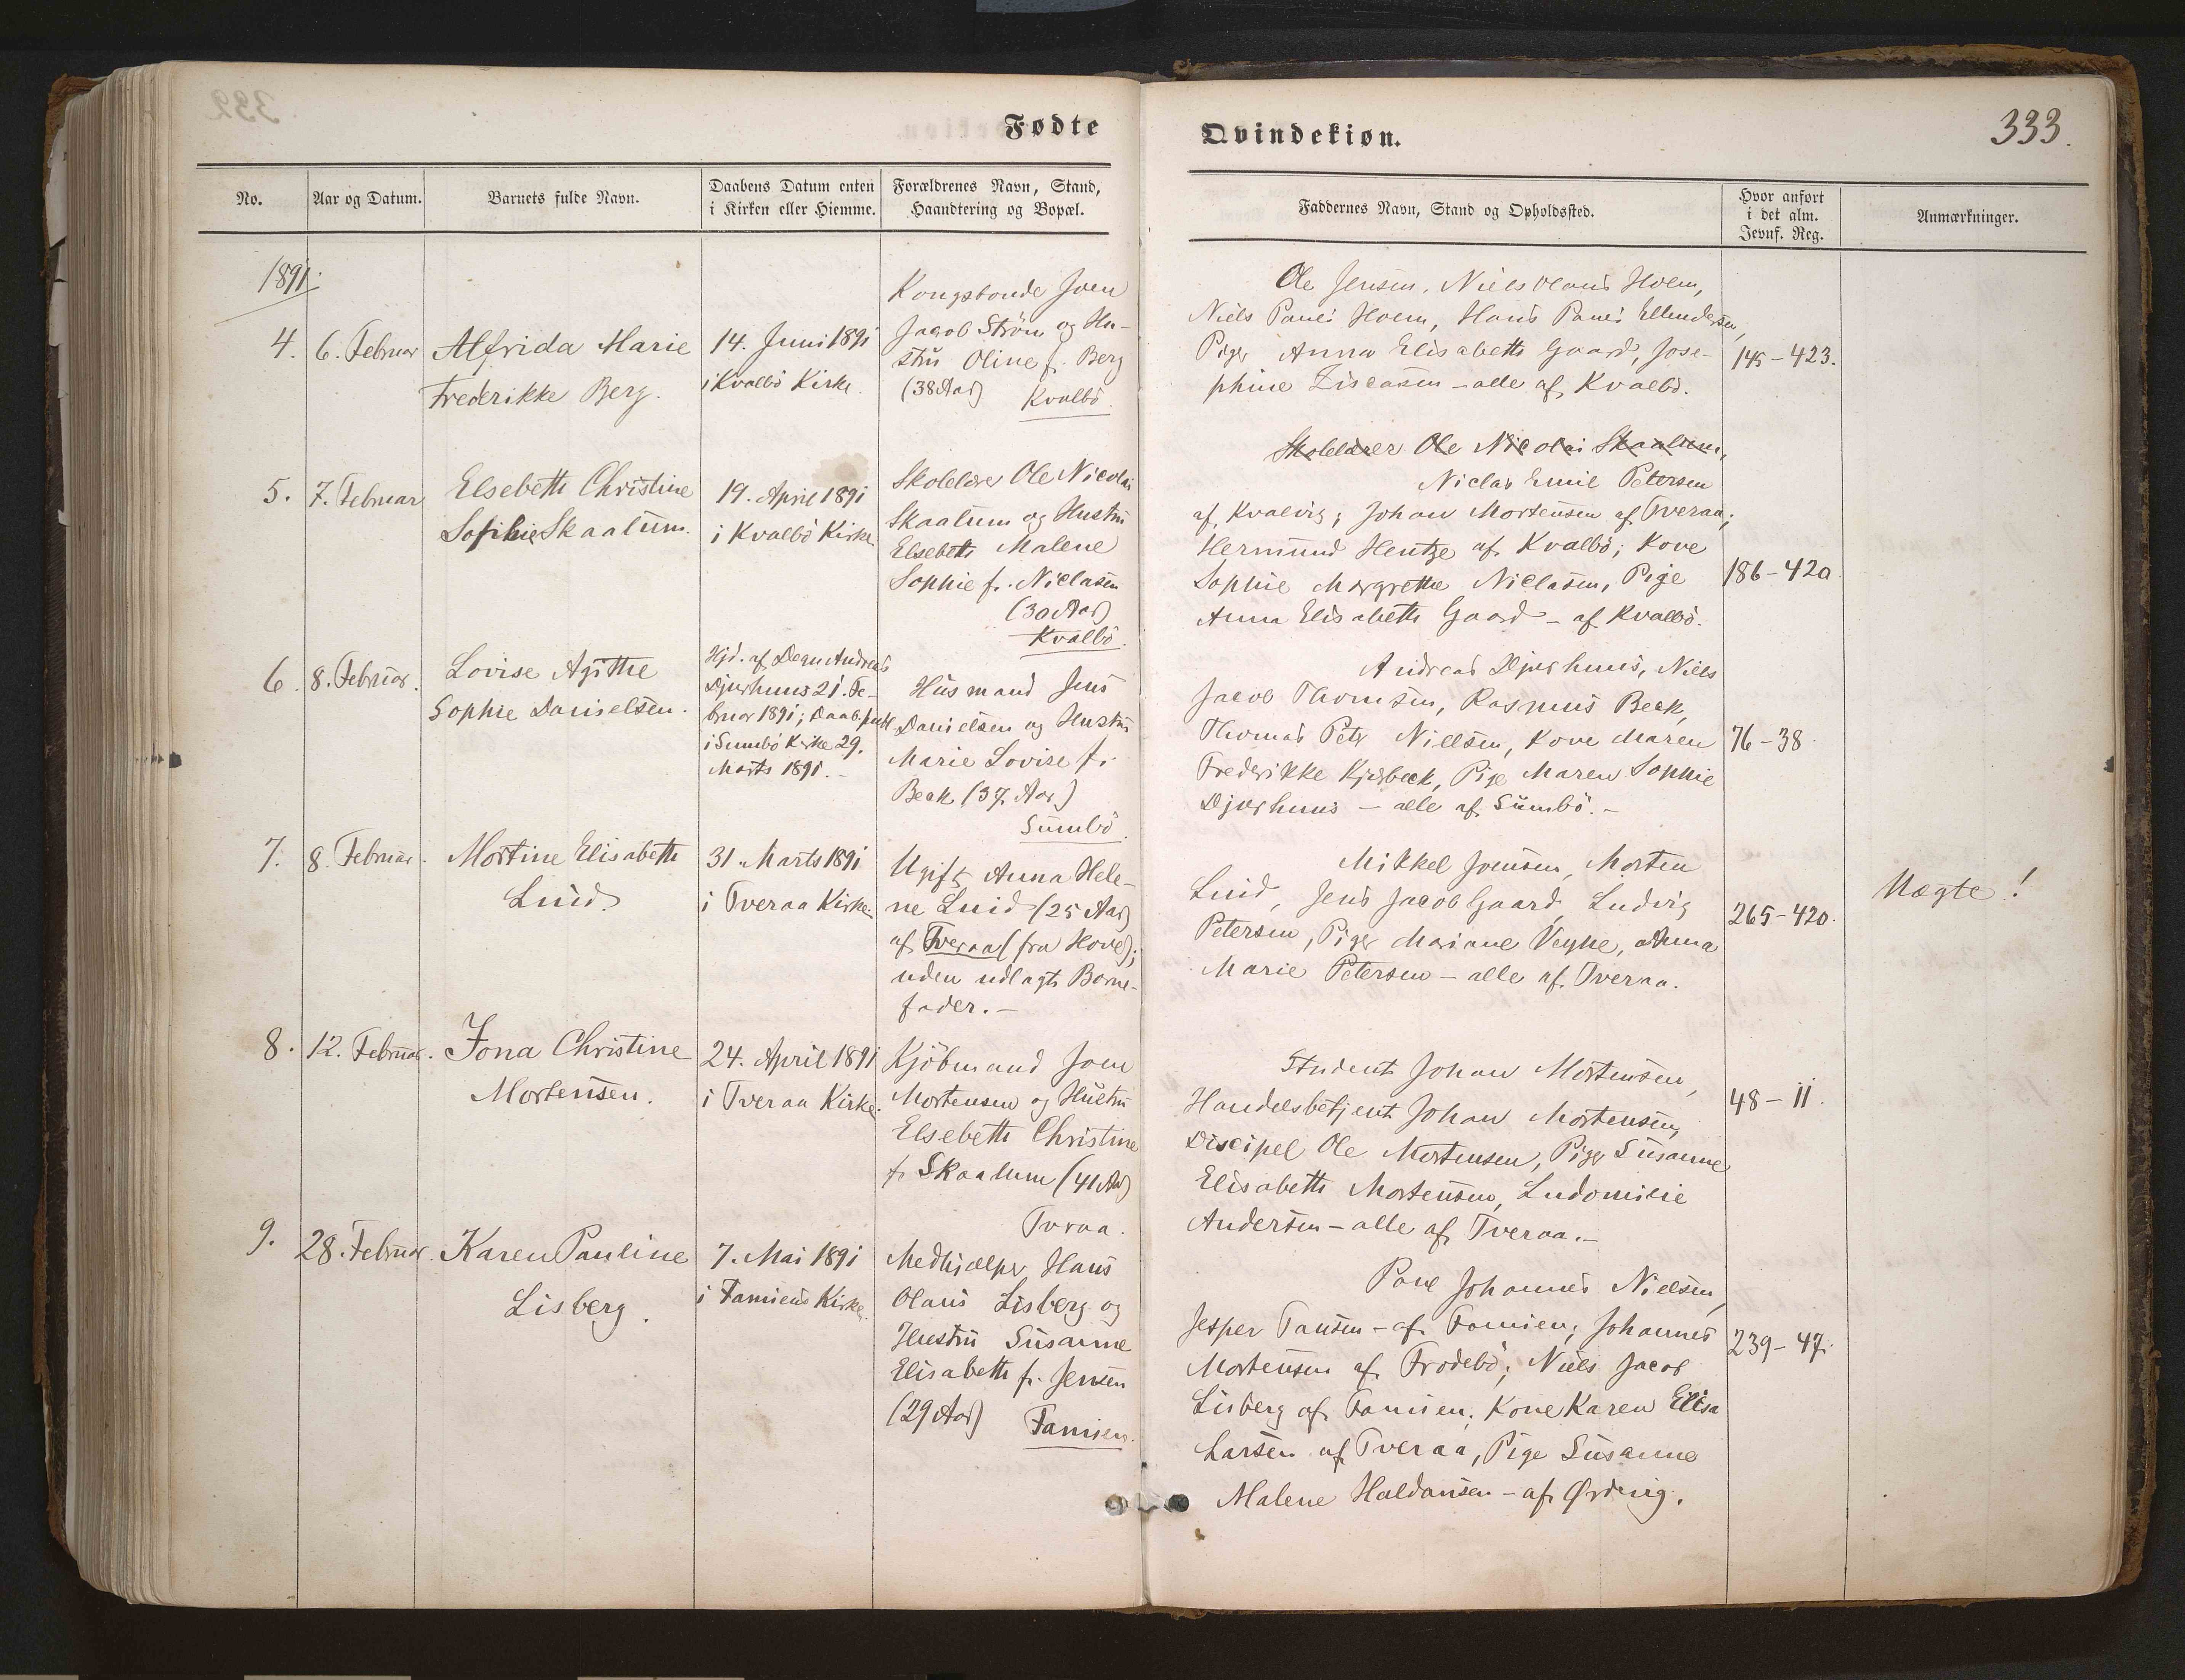 Fødte
No.
Aar og Datum.
Barnets fulde Navn.
Daabens Datum enten
i Kirken eller Hiemme.
Forældrenes Navn, Stand,
Haandtering og Bopæl.
1891.
4.
6. Februar
Alfrida Marie
Frederikke Berg.
14. Juni 1891
i Kvalbö Kirke.
Kongsbonde Joen
Jacob Ström og Hu-
stru Oline f. Berg
(38 Aar)
Kvalbö.
5.
7. Februar
Elsebeth Christine
Sofihie Skaalum.
19. April 1891
i Kvalbö Kirke
Skolelærer Ole Nicolai
Skaalum og Hustru
Elsebeth Malene
Sophie f. Niclasen
(30 Aar)
Kvalbö.
6.
8. Februar.
Lovise Agithe
Sophie Danielsen.
Hjd. af Degn Andreas
Djurhuus 21. Fe-
bruar 1891; Daab publ
i Sumbö Kirke 29.
Marts 1891.-
Husmand Jens
Danielsen og Hustru
Marie Lovise f.
Beck (37 Aar)
Sumbö.
7.
8. Februar.
Mortine Elisabeth
Luid.
31. Marts 1891
i Tveraa Kirke.
Ugift Anna Hele-
ne Luid (25 Aar)
af Tveraa (fra Hove);
uden udlagt Barne-
fader.-
8.
12. Februar.
Jona Christine
Mortensen.
24. April 1891
i Tveraa Kirke.
Kjöbmand Joen
Mortensen og Hustru
Elsebeth Christine
f. Skaalum (41 Aar)
Tvraa.
9.
28. Februar.
Karen Pauline
Lisberg.
7. Mai 1891
i Famiens Kirke.
Medhjælper Hans
Olaus Lisberg og
Hustru Susanne
Elisabeth f. Jensen
(29 Aar)
Famien.
Qvindekiøn.
333.
Faddernes Navn, Stand og Opholdssted.
Hvor anført
i det alm.
Jevnf. Reg.
Anmærkninger.
Ole Jensen, Niels Olaus Holm,
Niels Paul Holm, Hans Paul Ellendersen,
Piger Anna Elisabeth Gaard, Jose-
phine – alle af Kvalbö.
145–423.
Skolelærer Ole Nicolai Skaalum,
Niclas Emil Petersen
af Kvalvig; Johan Mortensen af Tveraa;
Hermund Hentze af Kvalbö; Kone
Sophie Margrethe Niclasen, Pige
Anna Elisabeth Gaard – af Kvalbö.
186–420
Andreas Djurhuus, Niels
Jacob Thomsen, Rasmus Beck,
Thomas Peter Nielsen, Kone Maren
Frederikke Kjærbeck, Pige Maren Sophie
Djurhuus – alle af Sumbö.-
76–38.
Mikkel Joensen, Morten
Luid, Jens Jacob Gaard, Ludvig
Petersen, Piger Mariane Veyhe, Anna
Marie Petersen – alle af Tveraa.
265–420.
Uægte!
Student Johan Mortensen,
Handelsbetjent Johan Mortensen,
Discipel Ole Mortensen, Piger Susanne
Elisabeth Mortensen, Ludomilie
Andersen – alle af Tveraa.-
48–11.
Poul Johannes Nielsen,
Jesper Tausen – af Famien; Johannes
Mortensen af Frodebö; Niels Jacob
Lisberg af Famien; Kone Karen Elisa
Larsen af Tveraa, Pige Susanne
Malene Haldansen – af Ørdevig.
239–47.